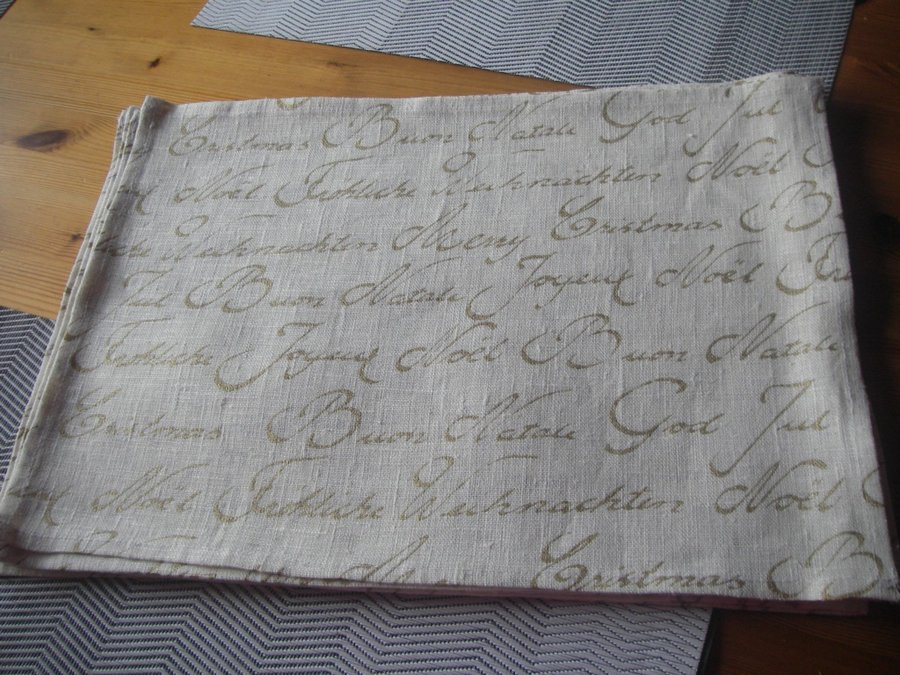 Cristmas Buon Natale God Jul
Noël Fröhliche Weihnachten Noël
Weihnachten Merry Cristmas B
Jul Buon Natale Joyeux Noël Frö
Fröhliche Joyeux Noël Buon Natale
Cristmas Buon Natale God Jul
Noël Fröhliche Weihnachten Noël
Cristmas B